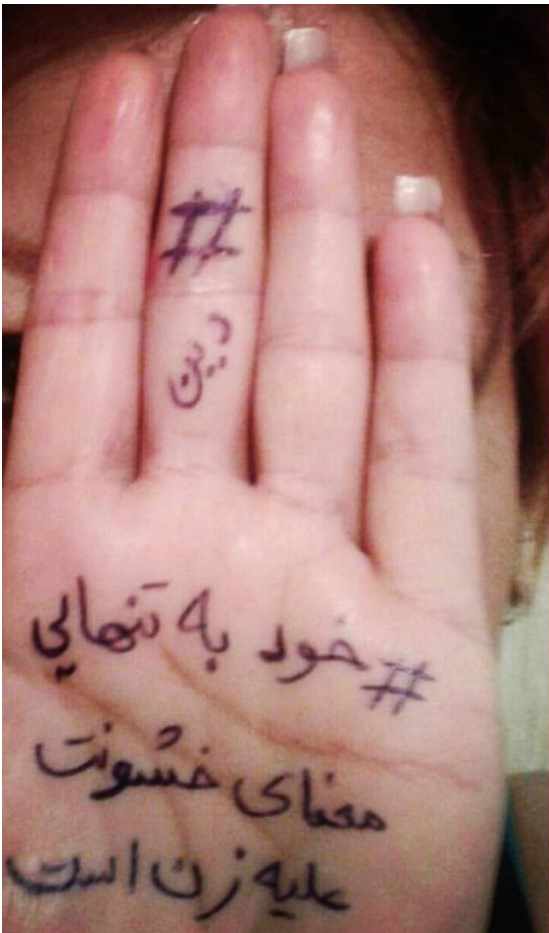 #
دین
#خود به تنهایی
معنای خشونت
علیه زن است